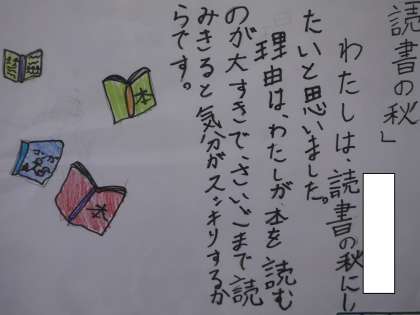 読書の秋」
わたしは、読書の秋にし
たいと思いました。
理由は、わたしが本を読む
のが大すきで、さいごまで読
みきると気分がスッキリするか
らです。
本
本